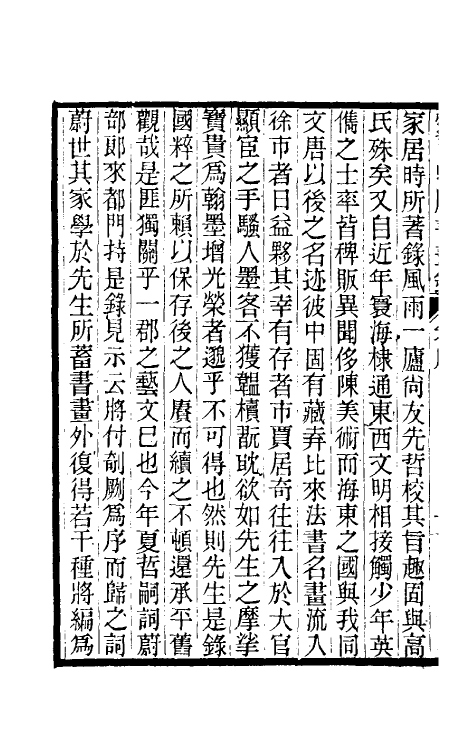 家居時所著錄風雨一廬尚友先哲校其旨趣固與高
氏殊矣又自近年寰海棣通東西文明相接觸少年英
儁之士率皆稗販異聞侈陳美術而海東之國與我同
文唐以後之名迹彼中固有藏弆比來法書名畫流入
徐市者日益夥其幸有存者市賈居奇往往入於大官
顯宦之手騷人墨客不獲韞櫝翫耽欲如先生之摩挲
寶貴爲翰墨增光榮者邈乎不可得也然則先生是錄
國粹之所賴以保存後之人賡而續之不頓還承平舊
觀哉是匪獨關乎一郡之藝文已也今年夏哲嗣詞蔚
部郎來都門持是錄見示云將付剞劂爲序而歸之詞
蔚世其家學於先生所蓄書畫外復得若干種將編爲